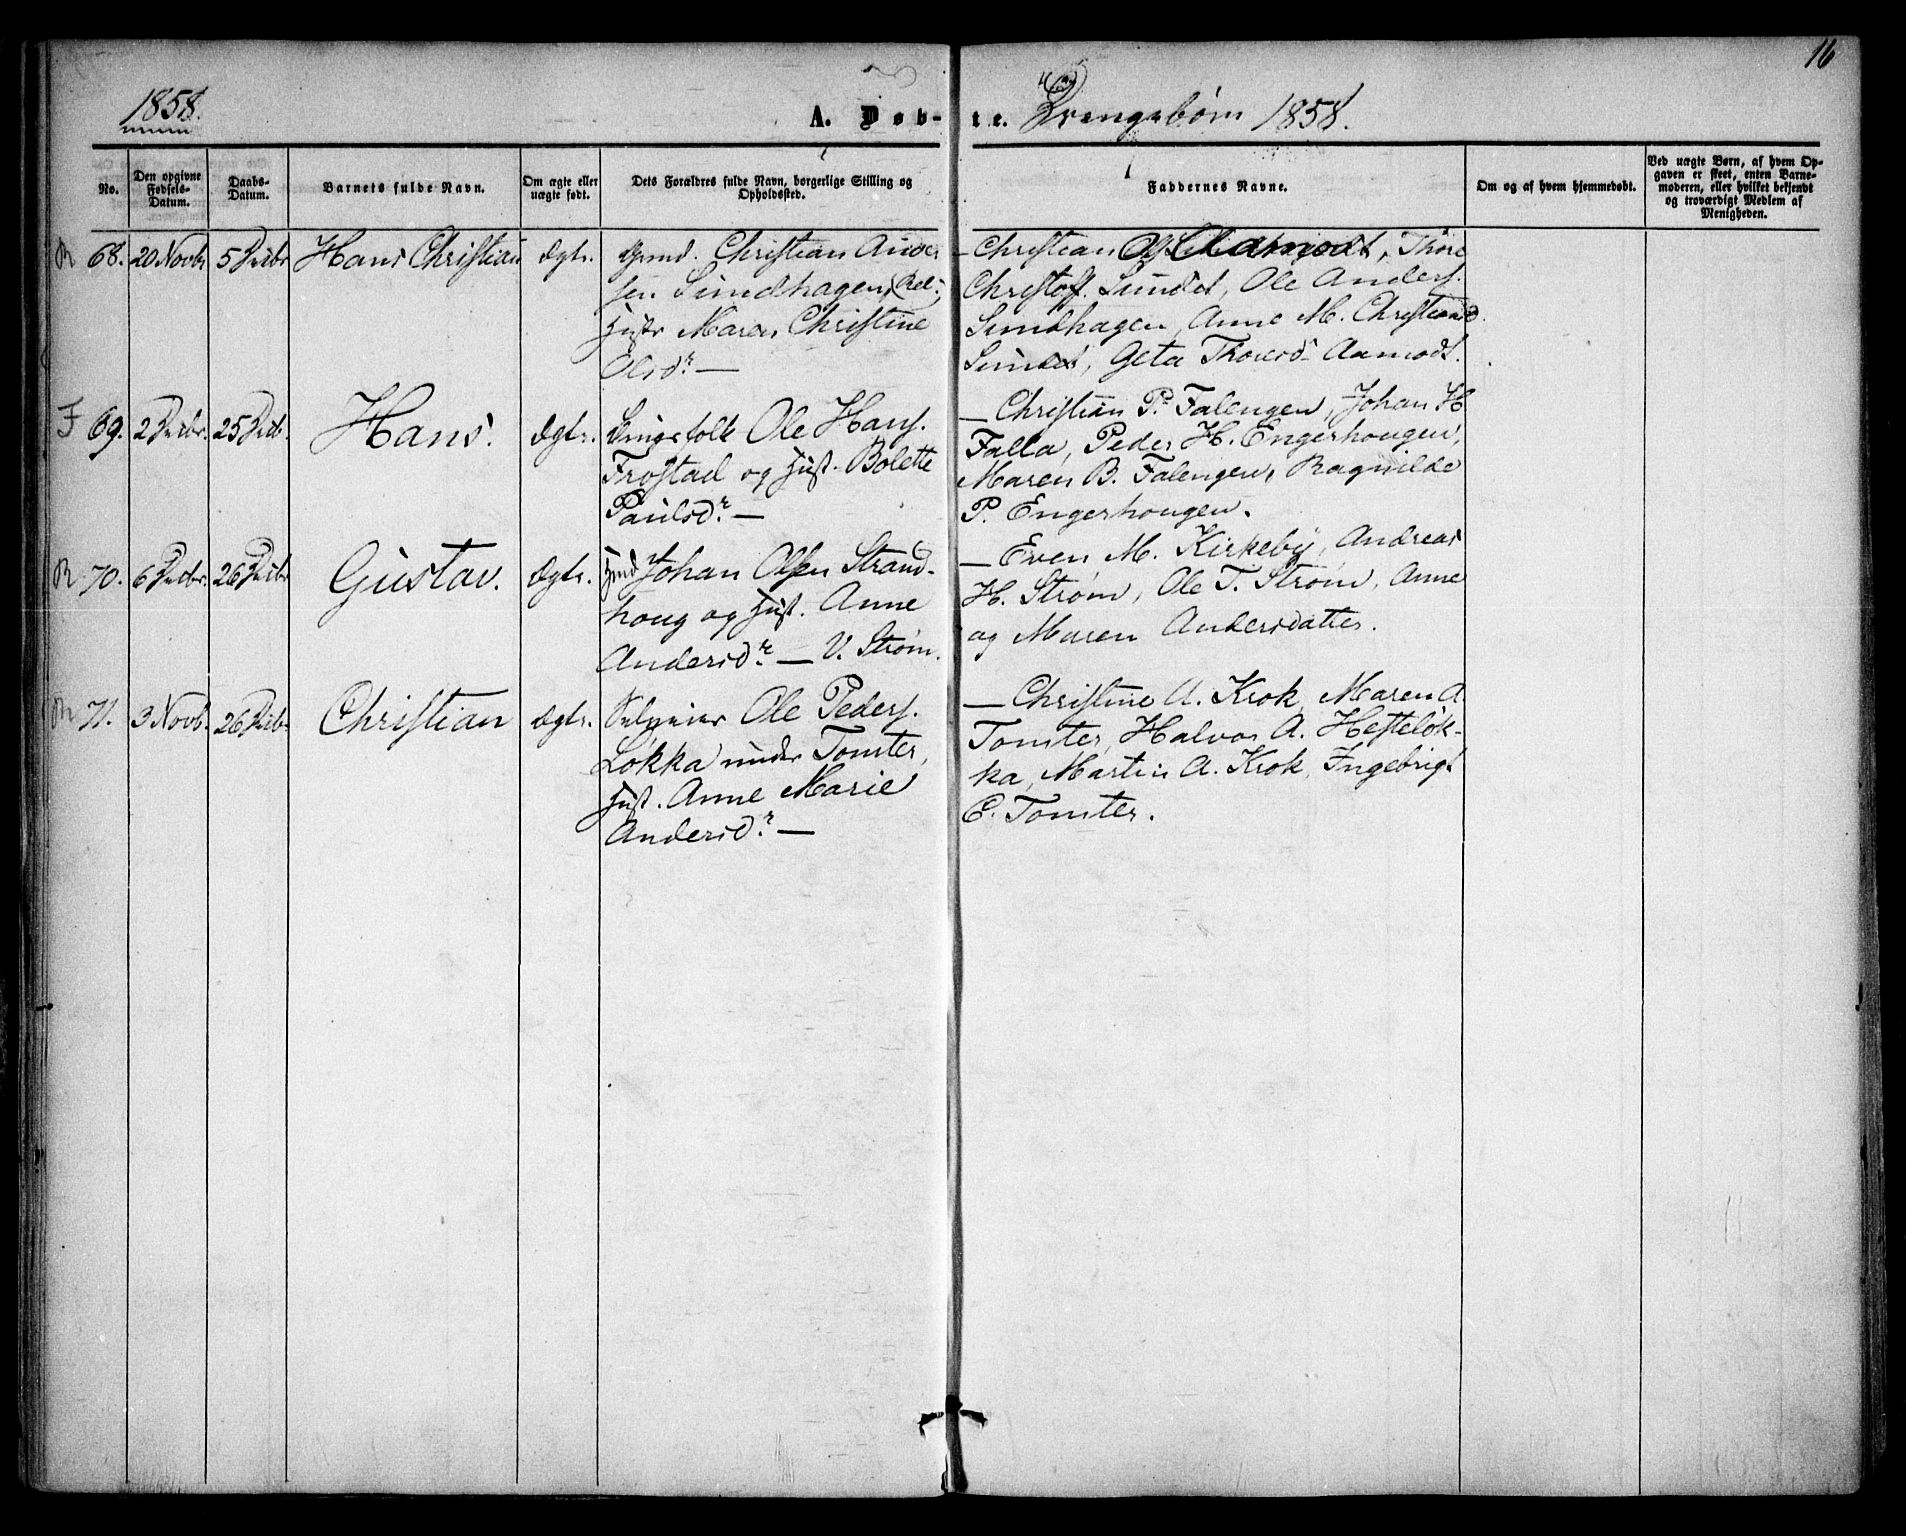 16
1858.
A. Døb-
te. Drengebørn 1858.
No.
Den opgivne Fødsels-Datum.
Daabs-Datum.
Barnets fulde Navn.
Om ægte eller uægte født.
Dets Forældres fulde Navn, borgerlige Stilling og Opholdssted.
Faddernes Navne.
Om og af hvem hjemmedøbt.
Ved uægte Børn, af hvem Opgaven er skeet, enten Barnemoderen, eller hvilket bekjendt og troværdigt Medlem af Menigheden.
R 68. 20 Novbr 5 Decbr Hans Christian Ægte. Christian Ander
sen Sundhagen,
Hustr Maren Christine
Olsdr. —
— Christian Aamodt, Thore
Christoff. Sundet, Ole Anders.
Sundhagen, Anne M. Christiansd.
Sundet, Geta Thoresd. Aamodt.
F 69. 2 Decbr. 25 Decb. Hans. Ægte. Ole Hans.
Frostad og Hust. Bolette
Paulsdr. —
— Christian P. Falengen, Johan H.
Falla, Peder H. Engerhougen,
Maren B. Falengen, Ragnilde
P. Engerhougen.
R 70. 6 Decbr. 26 Decbr Gustav. Ægte. Johan Olsen Strand-
houg og Hust. Anne
Andersdr. — V. Strøm.
— Even M. Kirkeby, Andreas
H. Strøm, Ole T. Strøm, Anne
og Maren Andersdatter.
R 71. 3 Novb. 26 Decb. Christian Ægte. Selveier Ole Peders.
Løkka under Tomter,
Hust. Anne Marie
Andersdr. —
— Christine A. Krok, Maren A.
Tomter, Halvor A. Hesteløk-
ka, Martin A. Krok, Ingebrigt
E. Tomter.